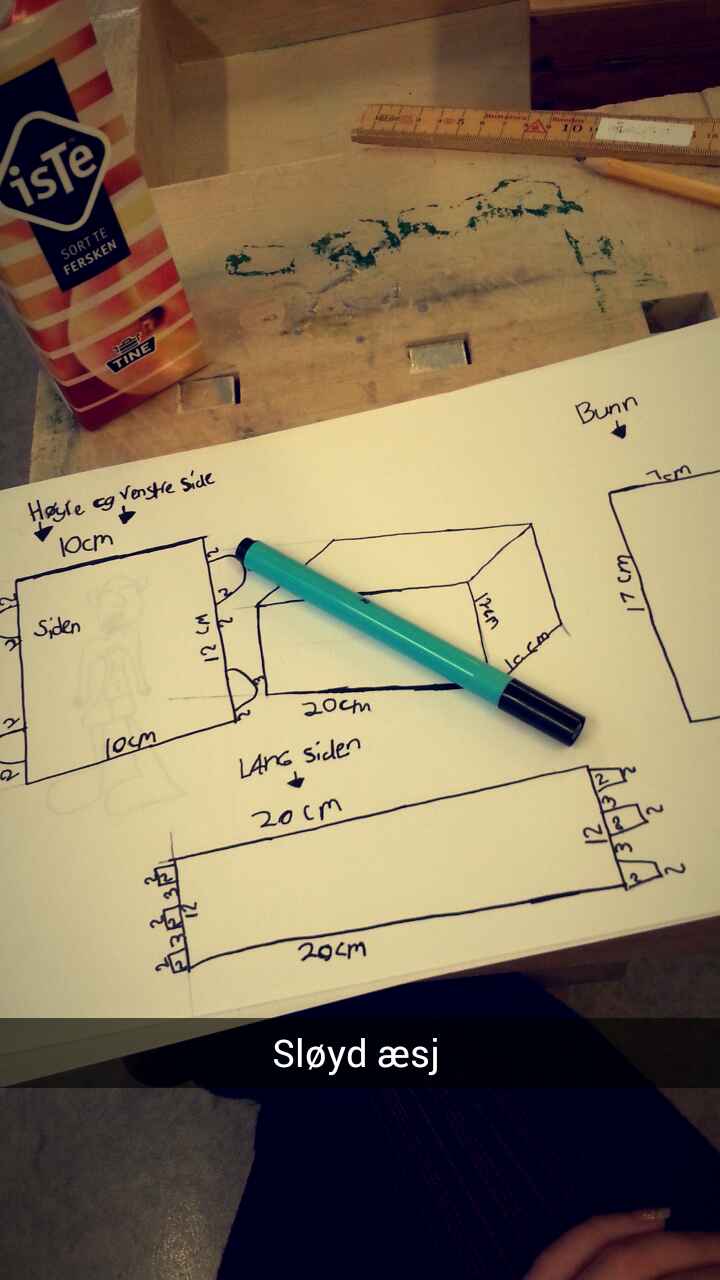 isTe
SORT TE
FERSKEN
TINE
5
10
Bunn
7cm
17 cm
Høyre og venstre side
10cm
Siden
2
2
2
2
2
3
2
2
12 cm
10cm
12cm
10cm
20cm
LANG siden
20 cm
2
2
3
2
2
3
2
2
12
2
2
3
2
2
3
2
2
12
20cm
Sløyd æsj